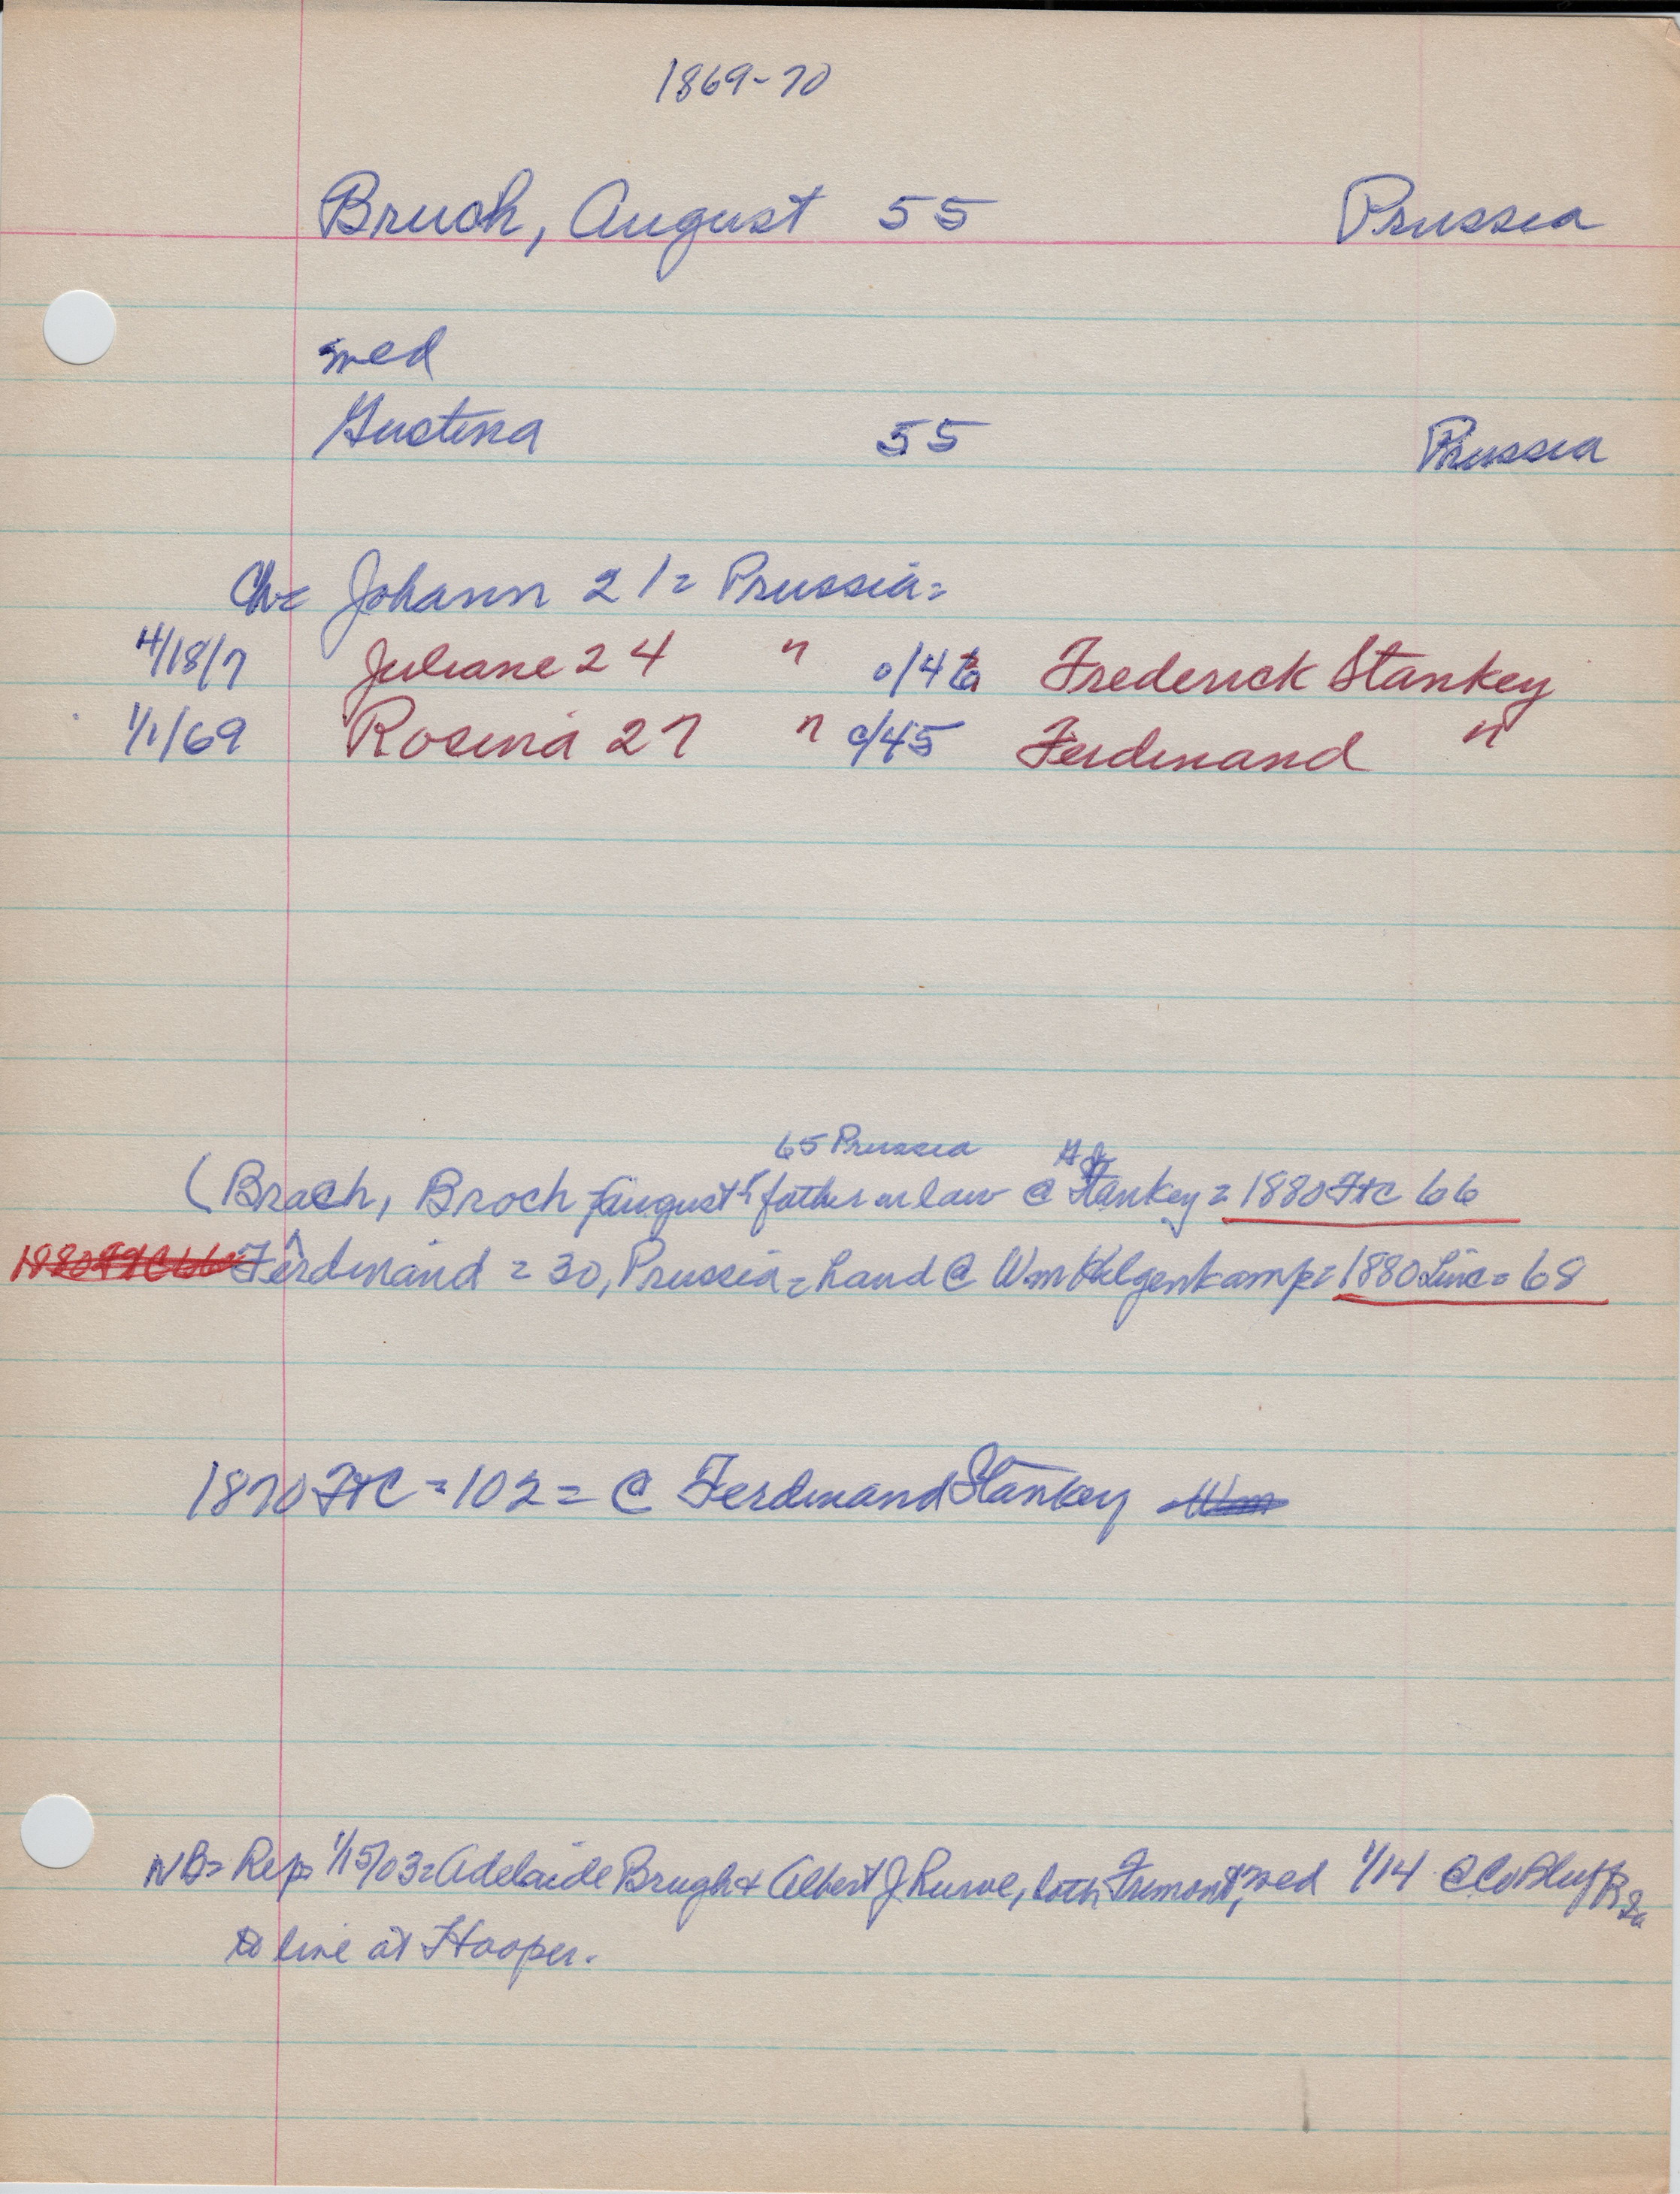 1869-70
Bruch, August 55 Prussia
med
Gustina 55 Prussia
Ch= Johann 21= Prussia=
4/18/7 Juliane 24 " Frederick Stankey
1/1/69 Rosina 27 " c/45 Ferdinand "
65 Prussia
(Brach, Broch August father in law @ Stankey = 1880 F+C 66
Ferdinand = 30, Prussia = hand @ Wm Kilgenkamp = 1880 Linc = 68
1870 F+C = 102 = @ Ferdinand Stankey
NB= Rep= 1/15/03= Adelaide Brugh & Albert J both Fremont, med 1/14 @ Co Bluffs Ia
to live at Hooper.